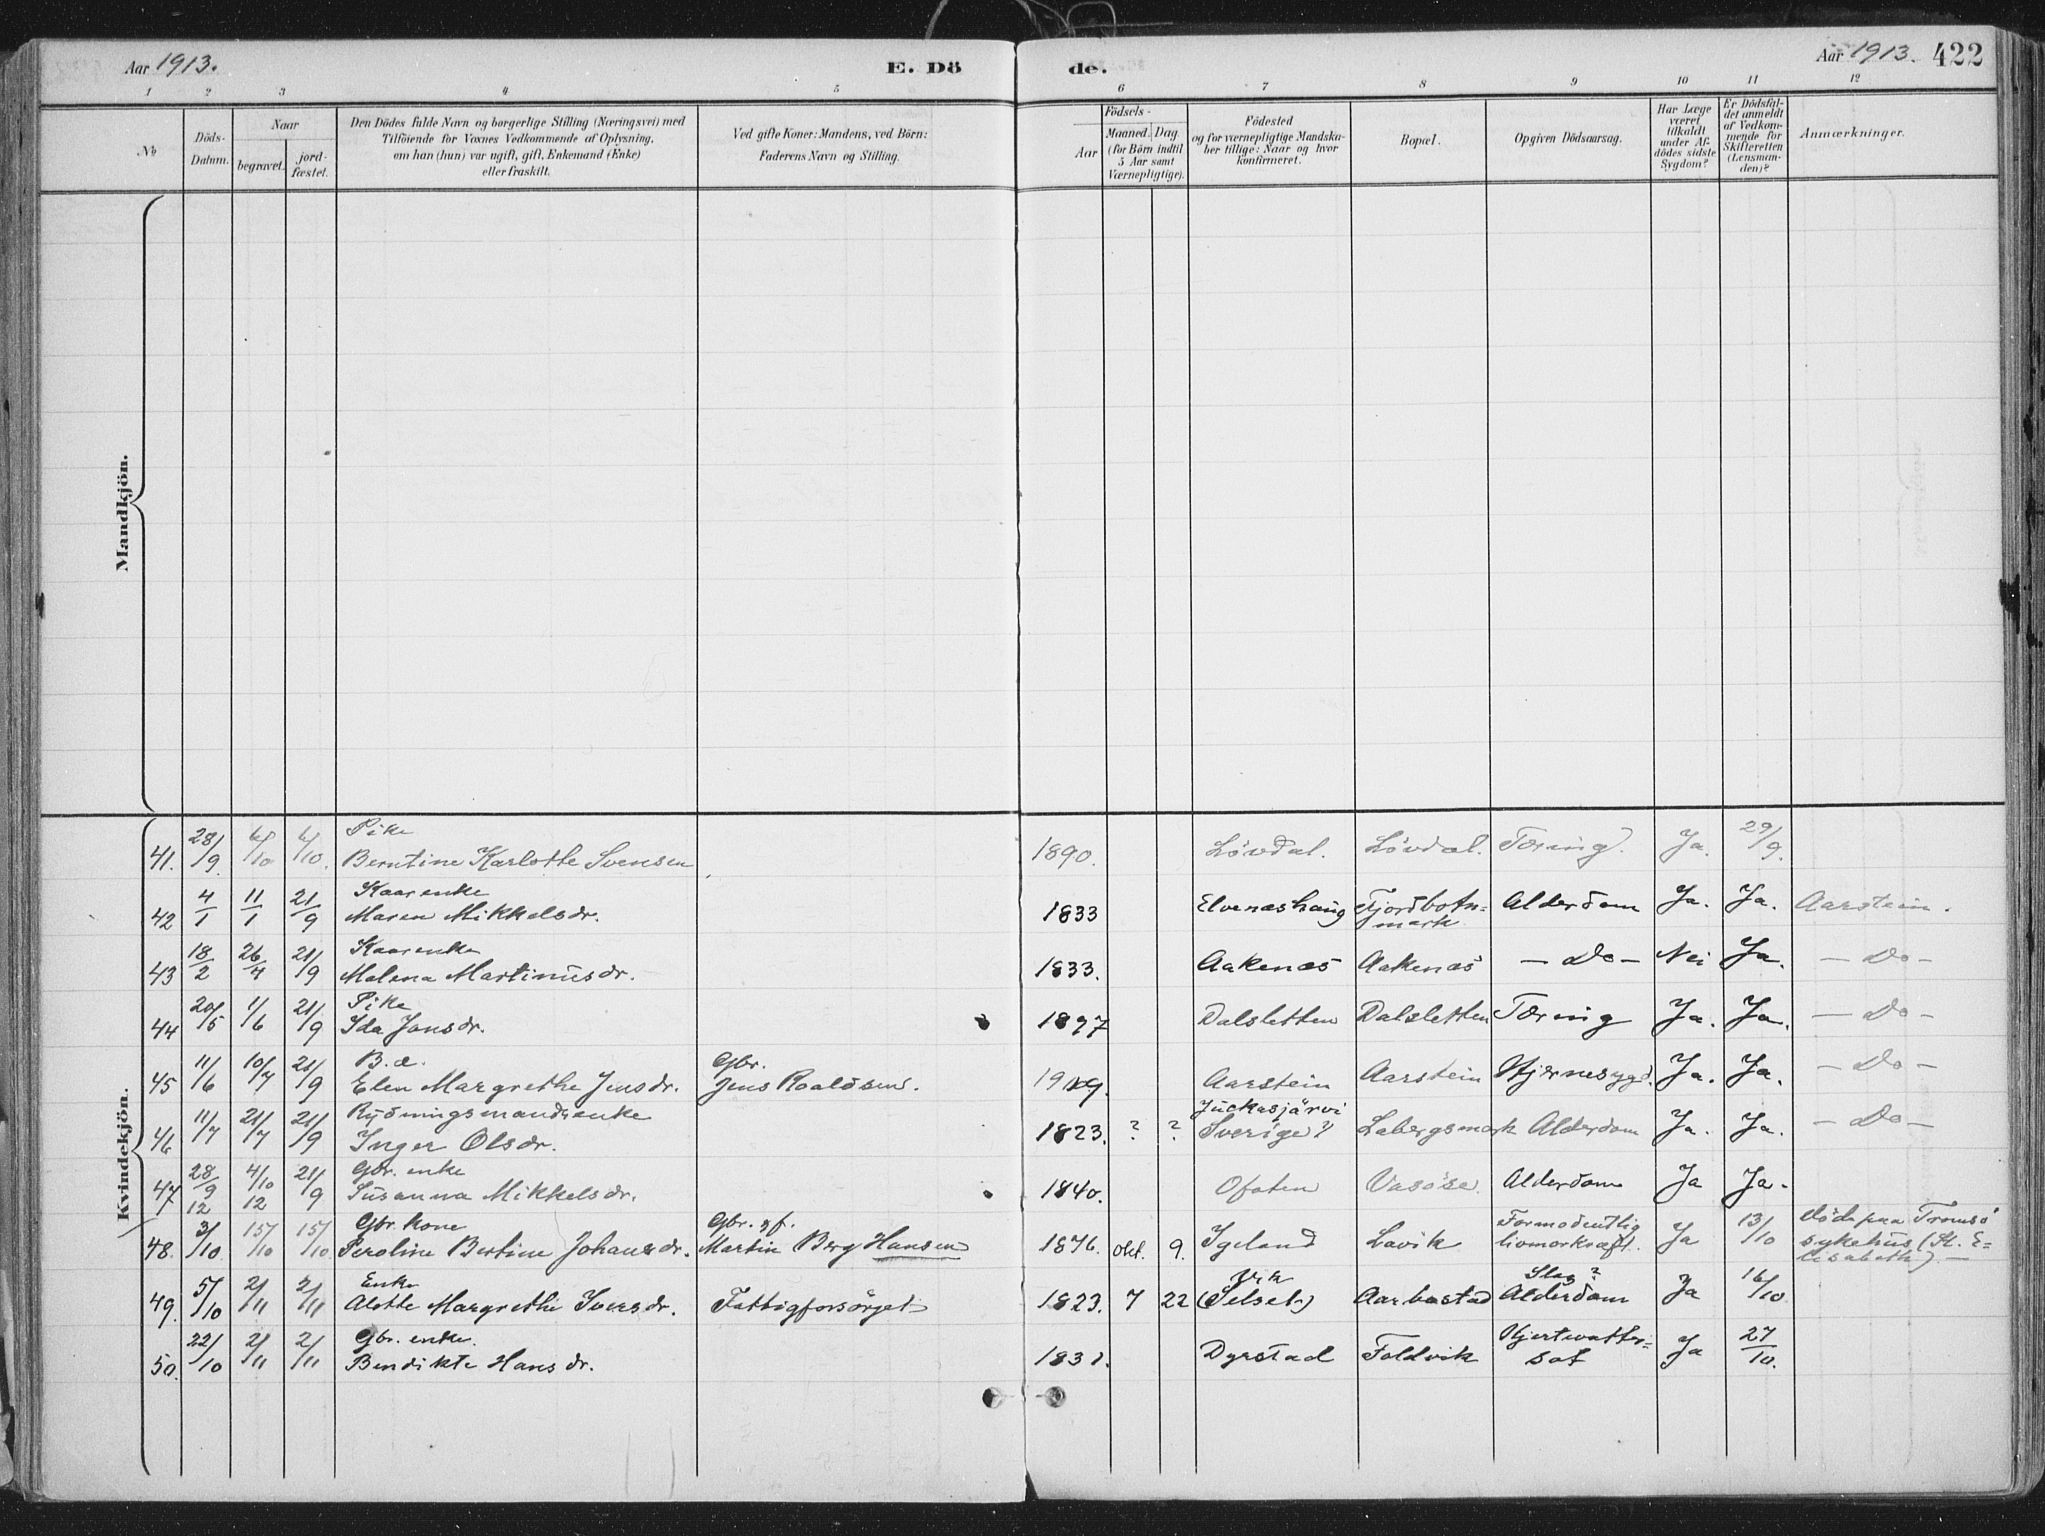 Aar 1913.
E. Dö
de.
Aar 1913. 422
1 2 3 4 5 6 7 8 9 10 11 12
No
Döds-
Datum.
Naar
begravet.
jord-
fæstet.
Den Dödes fulde Navn og borgerlige Stilling (Næringsvei) med
Tilföiende for Voxnes Vedkommende af Oplysning,
om han (hun) var ugift, gift, Enkemand (Enke)
eller fraskilt.
Ved gifte Koner: Mandens, ved Börn:
Faderens Navn og Stilling.
Födsels-
Aar
Maaned. Dag.
(for Börn indtil
5 Aar samt
Værnepligtige).
Födested
og for værnepligtige Mandska-
ber tillige: Naar og hvor
konfirmeret.
Bopæl.
Opgiven Dödsaarsag.
Har Læge
været
tilkaldt
under Af-
dödes sidste
Sygdom?
Er Dödsfal-
det anmeldt
af Vedkom-
mende for
Skifteretten
(Lensman-
den)?
Anmærkninger.
Mandkjön.
Kvindekjön.
Pike
41. 28/9. 6/10 6/10. Berntine Karlotte Svensen 1890. Lövdal. Lövdal. Tæring. Ja. 29/9.
Kaarenke
42 4/1 11/1 21/9 Maren Mikkelsdr. 1833 Elvenæshaug Fjordbotn=
mark Alderdom Ja. Ja. Aarstein.
Kaarenke
43 18/2 26/4 21/9 Malena Martinusdr. 1833. Aakenæs Aakenæs — Do — Nei Ja. — Do —
Pike
44 20/5 1/6 21/9 Ida Jonsdr. 1897 Dalsletten Dalsletten Tæring Ja. Ja. — Do —
B. æ. Gbr.
45 11/6 10/7 21/9 Elen Margrethe Jensdr. Jens Roaldsens. Aarstein Aarstein Hjernesygd. Ja. Ja. — Do —
Rydningsmandsenke Juckasjärvi
46 11/7 21/7 21/9 Inger Olsdr. 1823. ? ? Sverige? Labergsmark Alderdom Ja. Ja. — Do —
Gbr. enke
47 28/9 4/10 21/9 Susanna Mikkelsdr. 1840. Ofoten Alderdom Ja Ja.
12 12
Gbr. kone Gbr. gf. Formodentlig
48. 3/10 15/10 15/10 Peroline Bertine Johansdr. Martin Berg Hansen 1876. okt. 9. Igeland Lavik livmorkræft. Ja 13/10 döde paa Tromsö
sykehus (St. E=
lisabeth).
Enke Slag?
49. 5/10 2/11 2/11 Alotte Margrethe Iversdr. Fattigforsörget 1823. 7 22 (Selset) Aarbostad Alderdom Ja 16/10
Gbr. enke.
50. 22/10 2/11 2/11 Bendikte Hansdr. Dyrstad Foldvik Hjertevatter=
sot Ja 27/10.